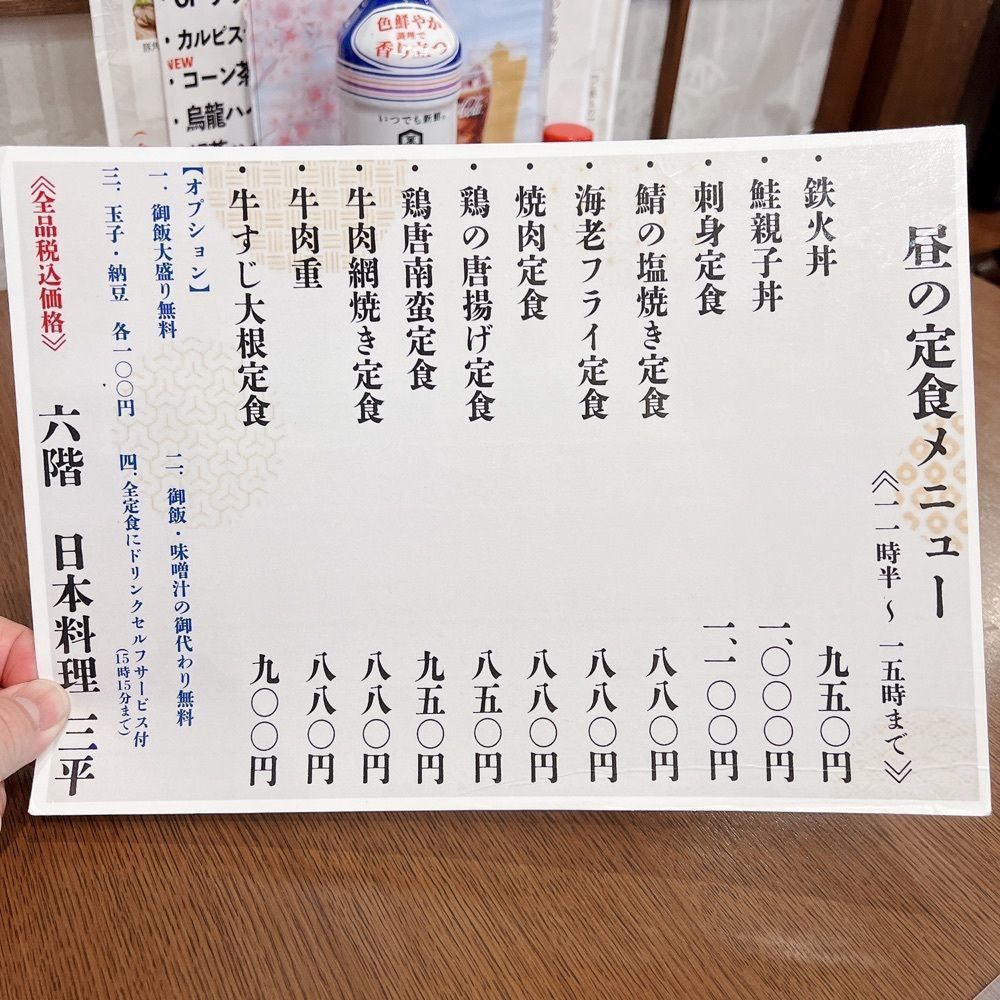 昼の定食メニュー
《一一時半～一五時まで》
・鉄火丼 九五〇円
・鮭親子丼 一、〇〇〇円
・刺身定食 一、一〇〇円
・鯖の塩焼き定食 八八〇円
・海老フライ定食 八八〇円
・焼肉定食 八八〇円
・鶏の唐揚げ定食 八五〇円
・鶏唐南蛮定食 九五〇円
・牛肉網焼き定食 八八〇円
・牛肉重 八八〇円
・牛すじ大根定食 九〇〇円
【オプション】
一．御飯大盛り無料
二．御飯・味噌汁の御代わり無料
三．玉子・納豆 各一〇〇円
四．全定食にドリンクセルフサービス付
(15時15分まで)
《全品税込価格》
六階 日本料理 三平
・カルピス
NEW
・コーン茶
・烏龍ハイ
色鮮やか
調理で
香り立つ
いつでも新鮮。
Coca-Cola